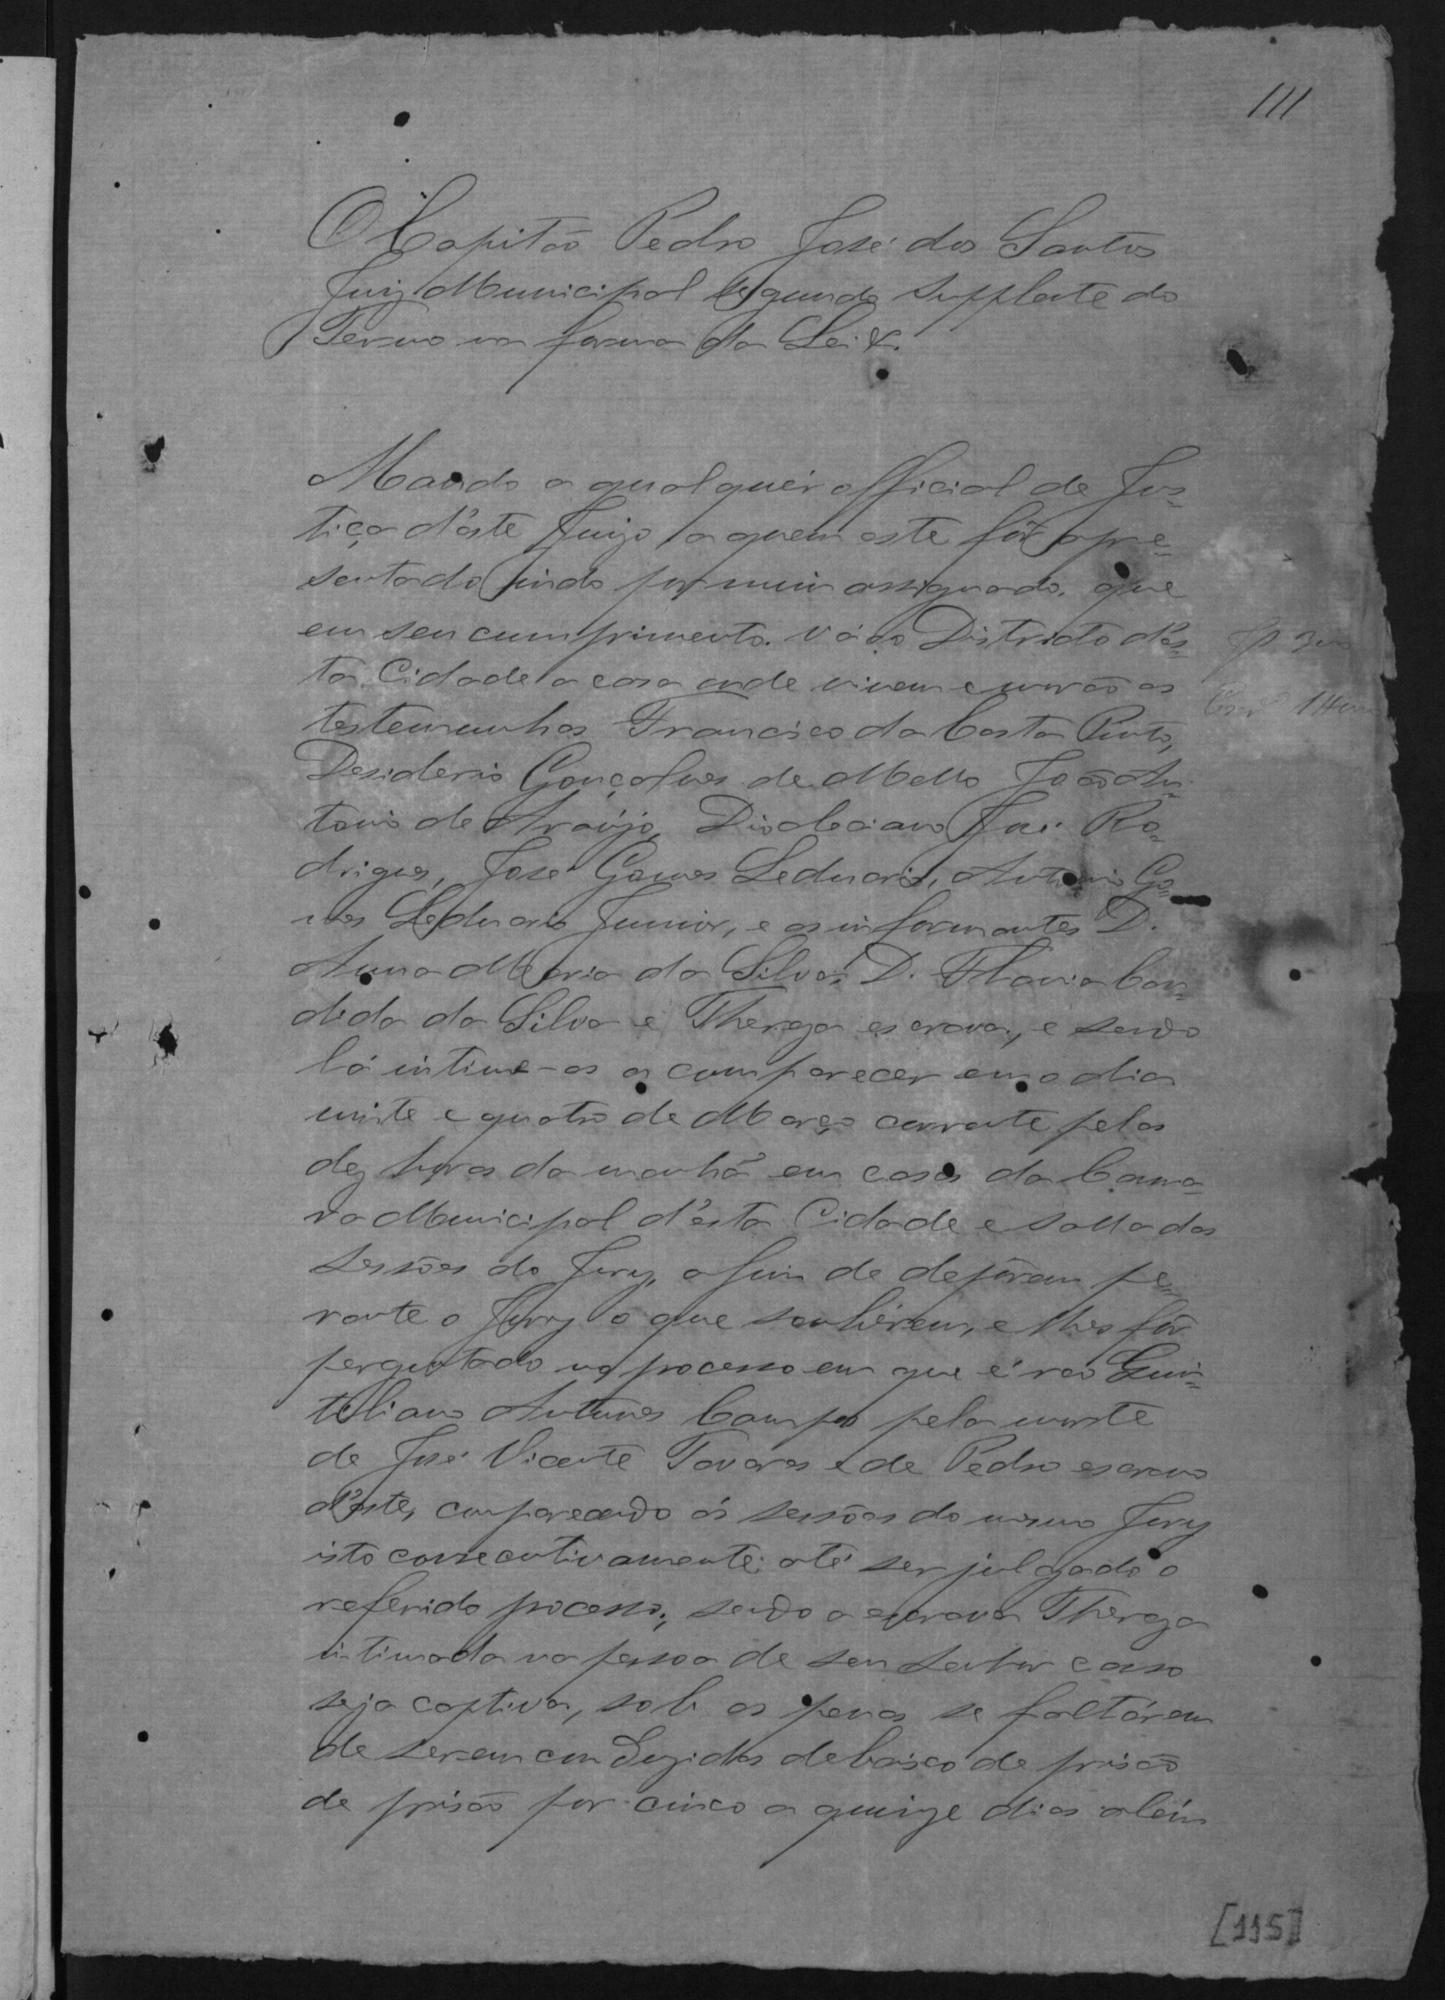 111
O Capitão Pedro José dos Santos
Juiz Municipal segundo supplente do
Termo na forma da Lei &.
Mando a qualquér official de Jus-
tiça d'este Juizo a quem este fôr apre-
sentado indo por mim assignado, que
em seu cumprimento. vá ao Districto d'es-
ta Cidade a casa onde vivem e morão as
testemunhas Francisco da Costa Pinto,
Desiderio Gonçalves de Mello João An-
tonio de Araújo, Diocleciano José Ro-
drigues, José Gomes Leduario, Antonio Go-
mes Leduario Junior, e as informantes D.
Anna Maria da Silva, D. Flavia Can-
dida da Silva e Thereza escrava, e sendo
lá intime-os a comparecer em o dia
vinte e quatro de Março corrente pelas
dez horas da manhã em casa da Cama-
ra Municipal d'esta Cidade e salla das
sessões do Jury, afim de depôrem pe-
rante o Jury o que soubérem, e lhes fôr
perguntado no processo em que é réo Quin-
tiliano Antunes Campos pela morte
de José Vicente Tavares e de Pedro escravo
d'este, comparecendo ás sessões do mesmo Jury
isto consecutivamente até ser julgado o
referido processo, sendo a escrava Thereza
intimada na pessoa de seu senhor caso
seja captiva, sob as penas se faltárem
de serem conduzidos debaixo de prisão
de prisão por cinco a quinze dias além
[115]